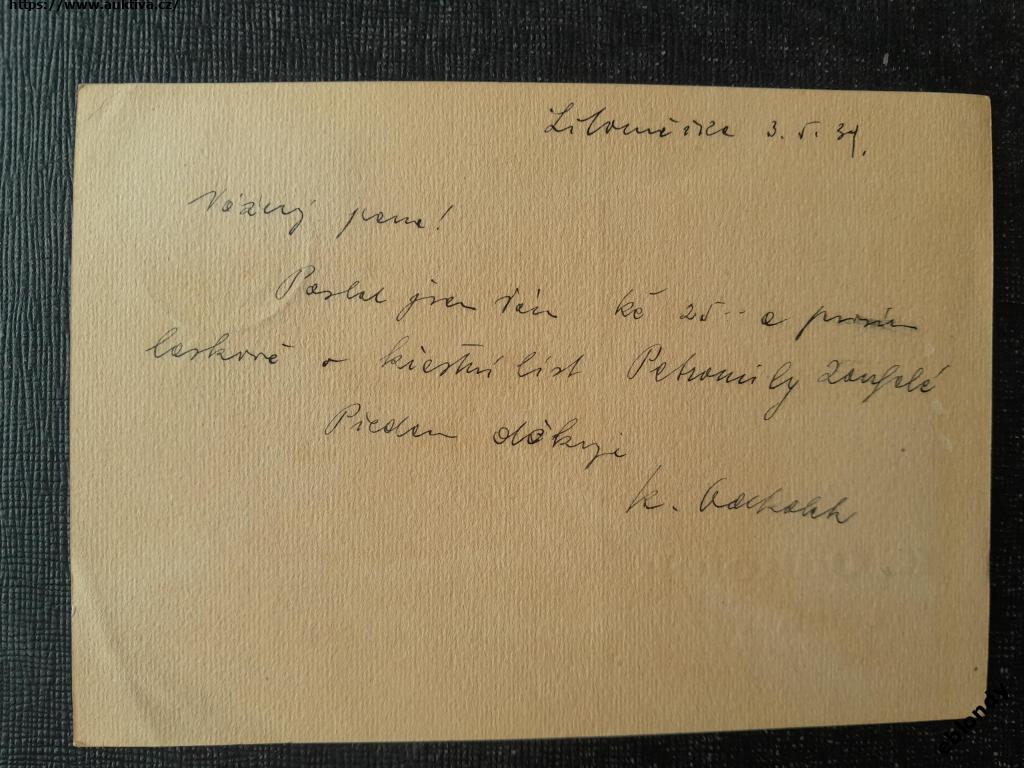 https://www.auktiva.cz/
Litoměřice 3. V. 34.
Vážený pane!
Poslal jsem Vám kč 25-- a prosím
laskavě o křestní list Petromily
Předem děkuji
K.
eblondy